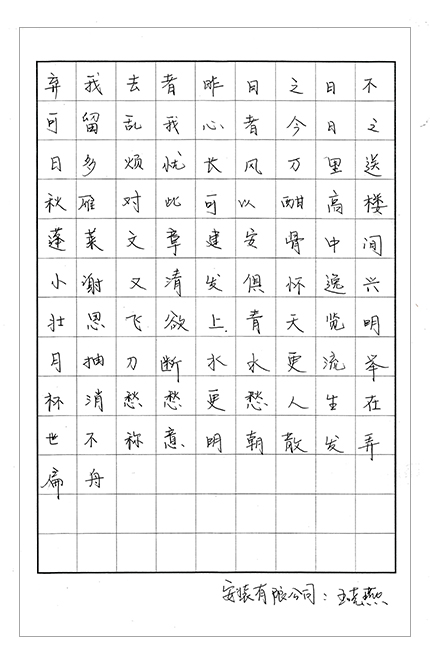 弃我去者昨日之日不
可留乱我心者今日之
日多烦忧长风万里送
秋雁对此可以酣高楼
蓬莱文章建安骨中间
小谢又清发俱怀逸兴
壮思飞欲上.青天览明
月抽刀断水水更流举
杯消愁愁更愁人生在
世不称意明朝散发弄
扁舟
安装有限公司:王克燕